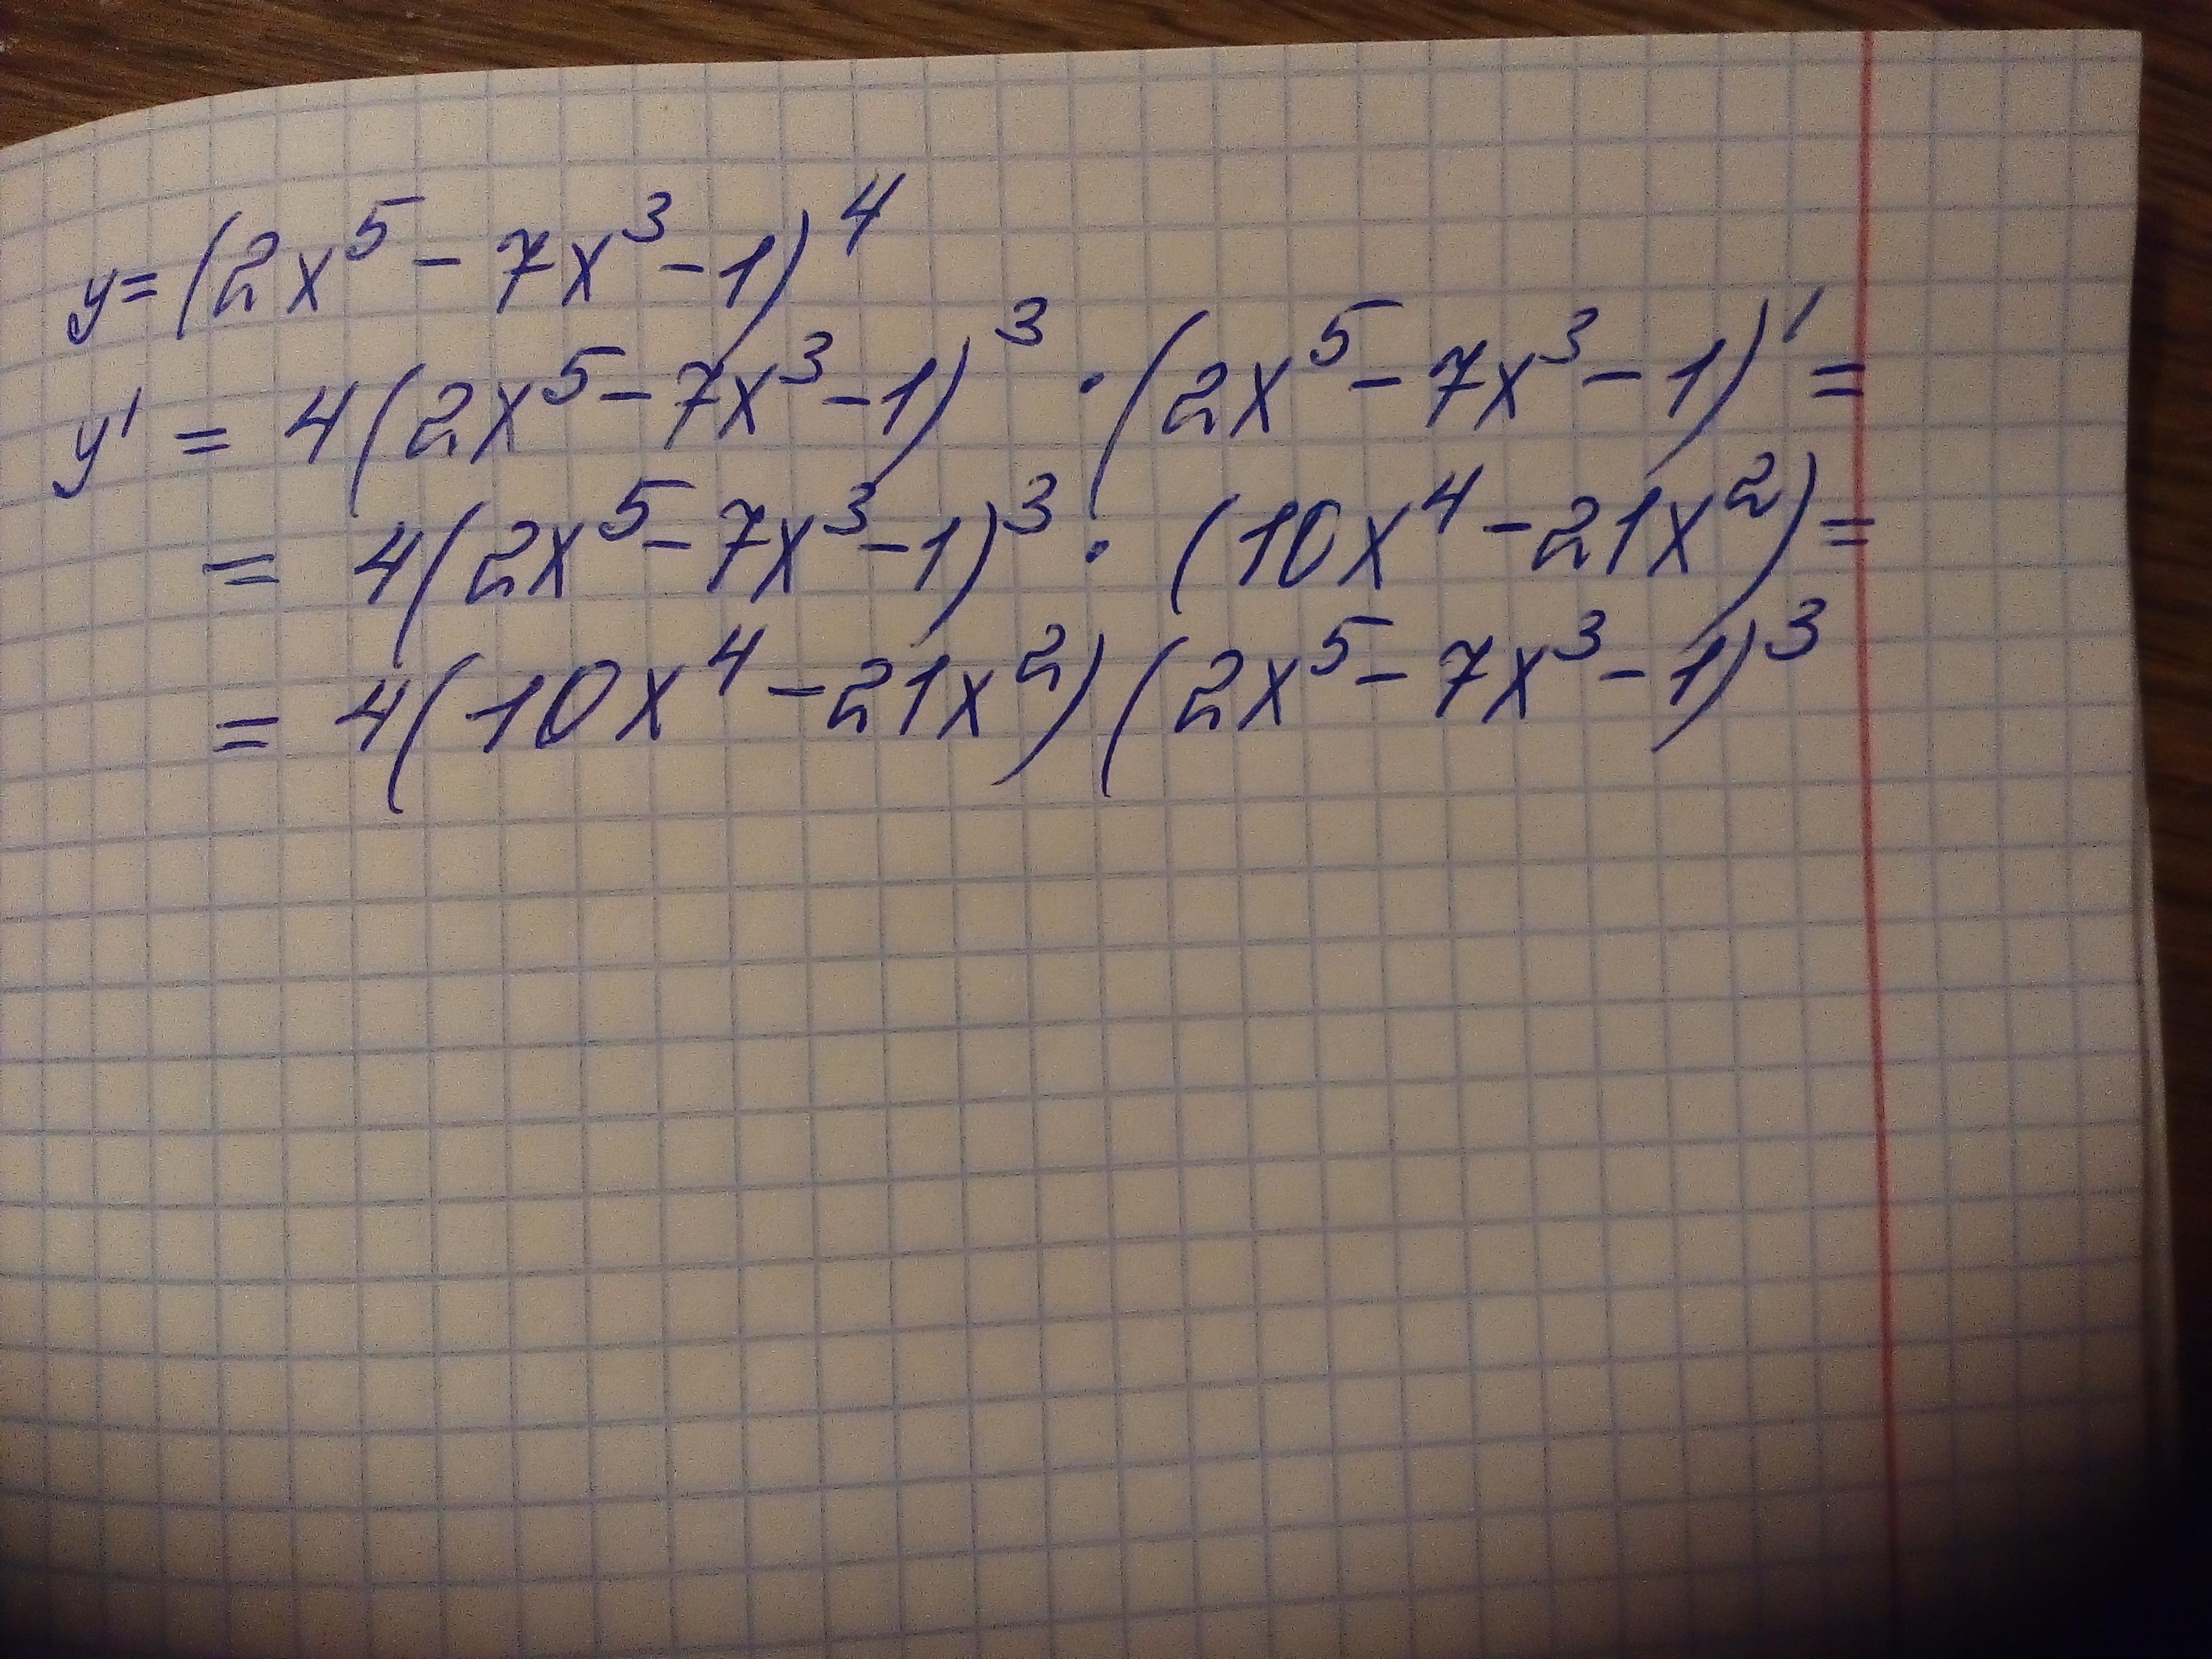 y=(2x⁵-7x³-1)⁴
y' = 4(2x⁵-7x³-1)³ ·(2x⁵-7x³-1)' =
= 4(2x⁵-7x³-1)³ · (10x⁴-21x²)=
= 4(10x⁴-21x²)(2x⁵-7x³-1)³